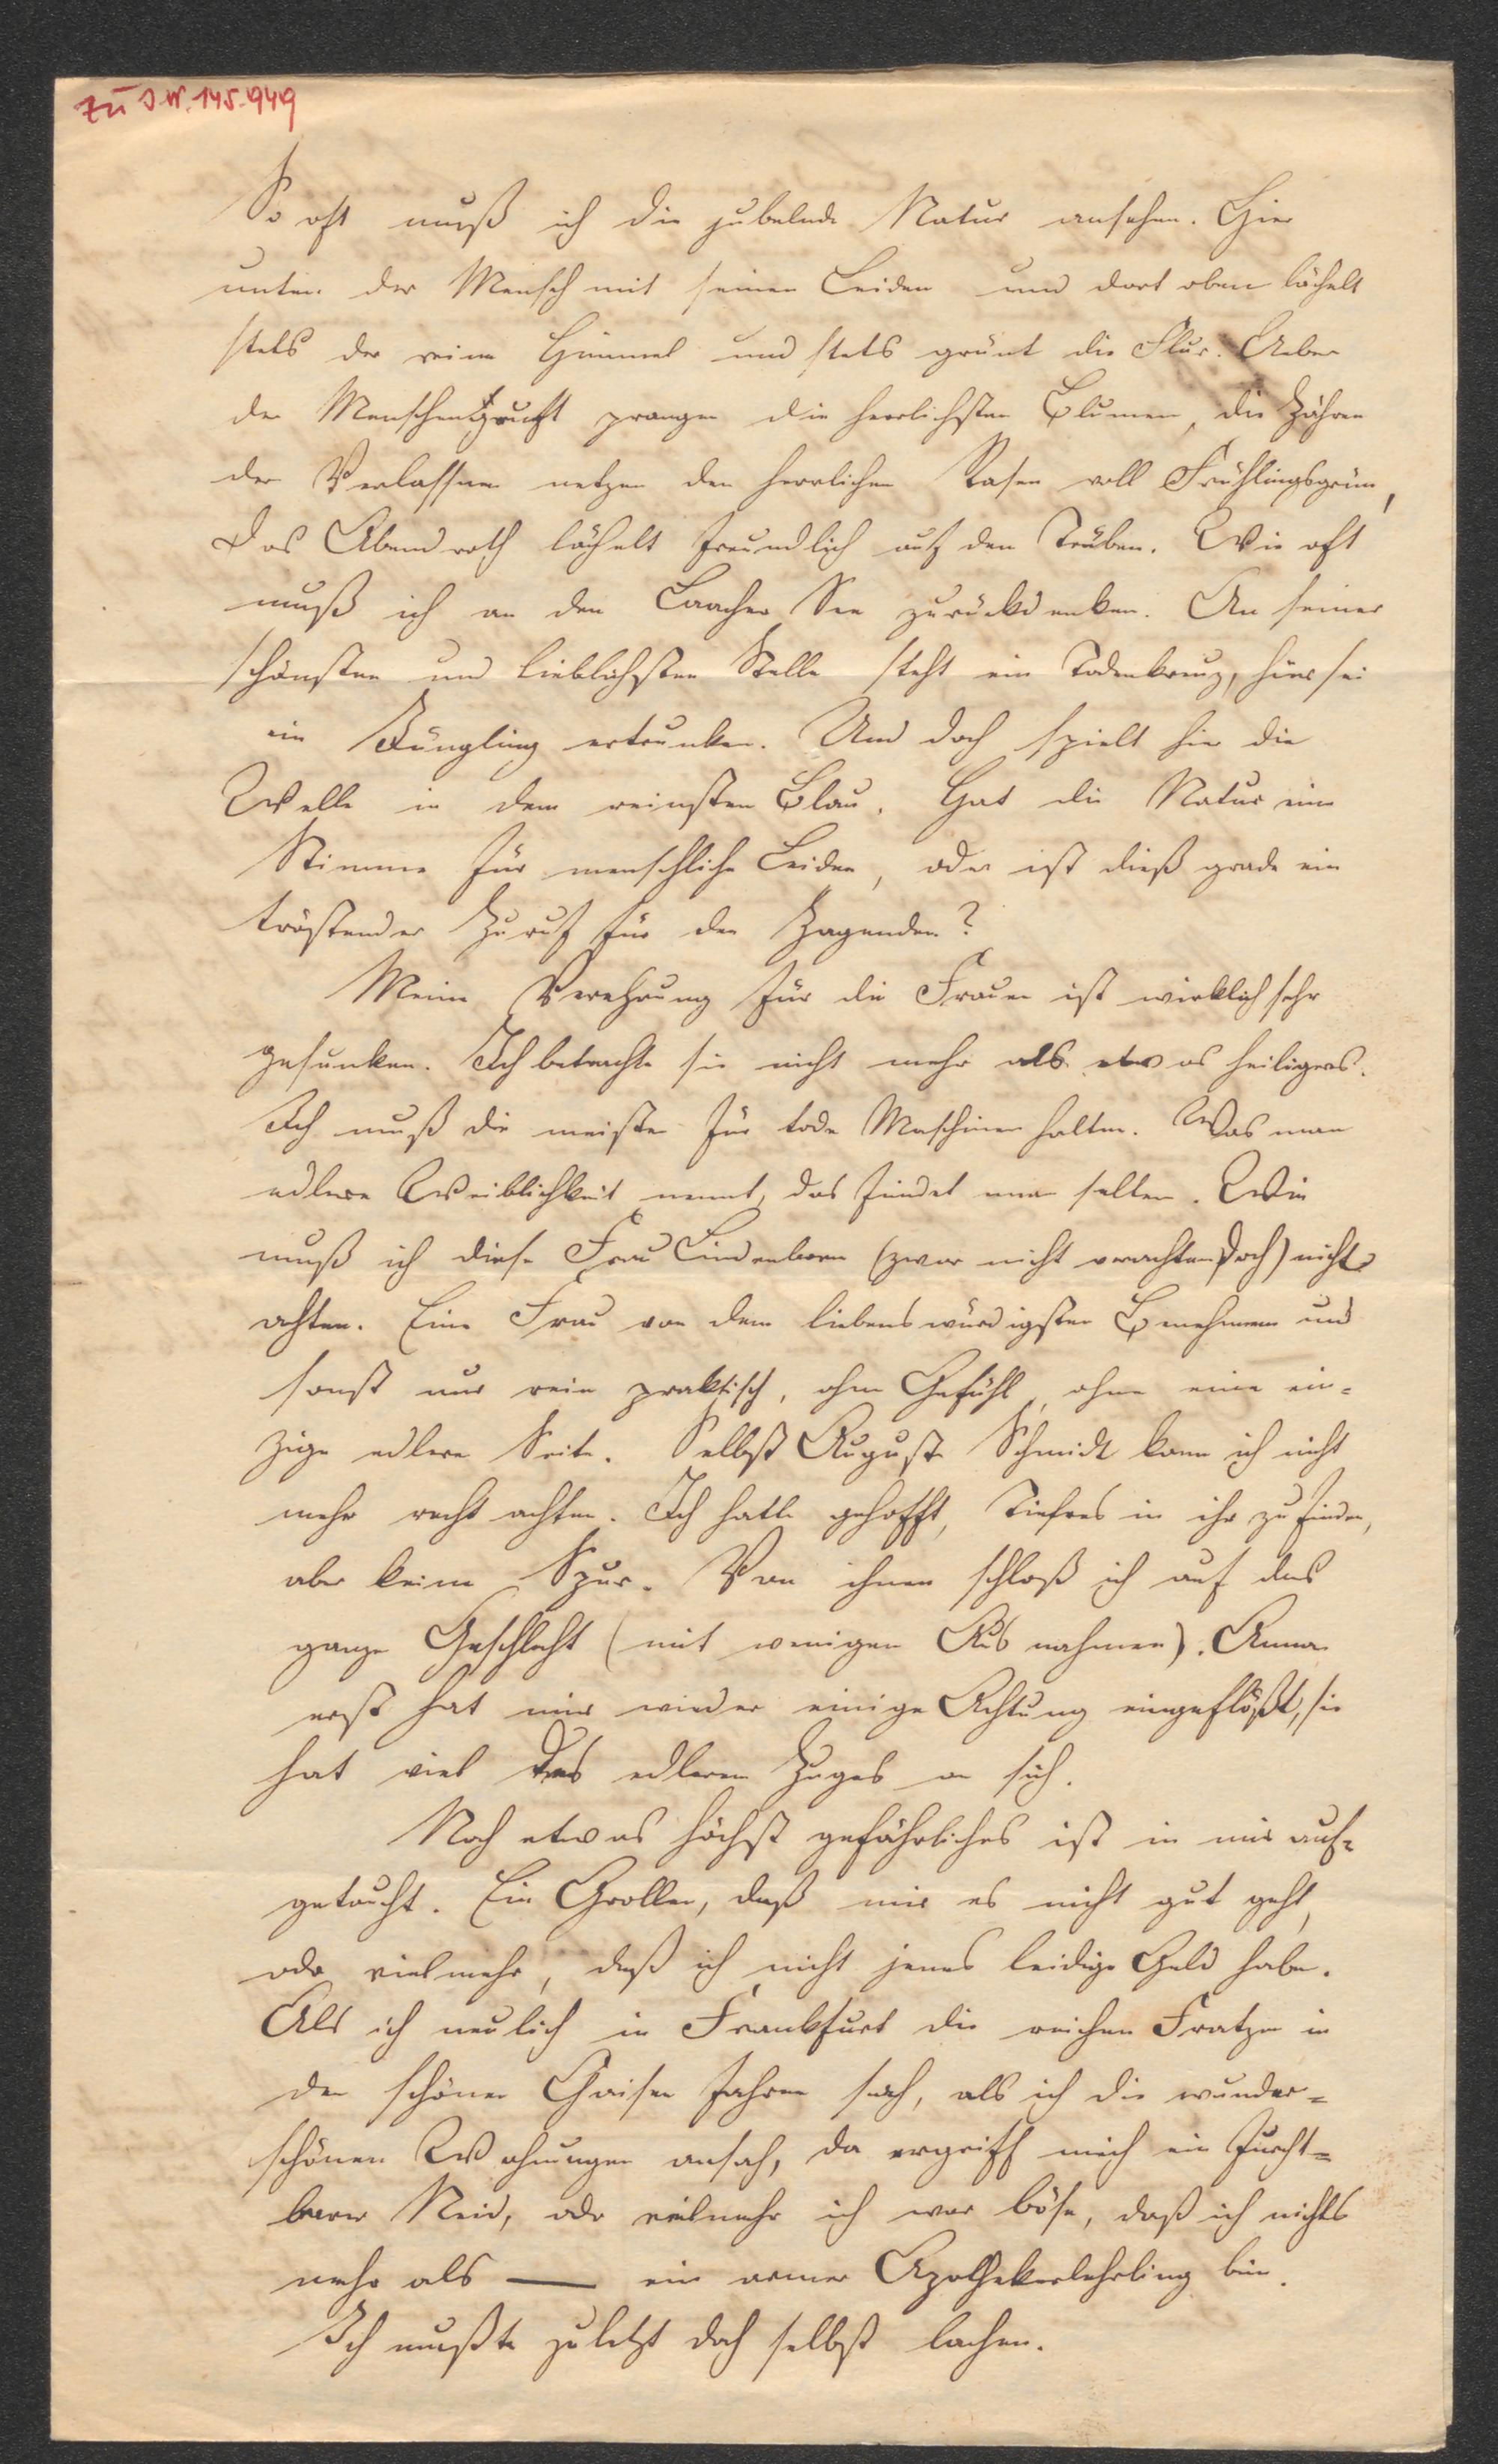 zu I.N. 145.949
So oft muß ich die jubelnde Natur ansehen. Hier
unten der Mensch mit seinen Leiden und dort oben lächelt
stets der reine Himmel und stets grünt die Flur. Ueber
der Menschen prangen die herrlichsten Blumen, die Zähren
der Verlassnen netzen den herrlichen Rasen voll Frühlingsgrün,
Das Abendroth lächelt freundlich auf den Trüben. Wie oft
muß ich an den Laacher See zurückdenken. An seiner
schönsten und lieblichsten Stelle steht ein Todenkreuz, hier sei
ein Jüngling ertrunken. Und doch spielt hier die
Welle in dem reinsten Blau. Hat die Natur eine
Stimme für menschliche Leiden, oder ist dieß grade ein
tröstender Zuruf für den Zagenden?
Meine Verehrung für die Frauen ist wirklich sehr
gesunken. Ich betrachte sie nicht mehr als etwas heiligeres.
Ich muß die meisten für tode Maschinen halten. Was man
edlere Weiblichkeit nennt, das findet man selten. Wie
muß ich diese Frau Lindenborn (zwar nicht verachten doch) nicht
achten. Eine Frau von dem liebenswürdigsten Benehmen und
sonst nur rein praktisch, ohne Gefühl, ohne eine ein-
zige edlere Seite. Selbst Auguste Schmidt kann ich nicht
mehr recht achten. Ich hatte gehofft, Tiefres in ihr zu finden,
aber keine Spur. Von ihnen schloß ich auf das
ganze Geschlecht (mit wenigen Ausnahmen). Anna
erst hat mir wieder einige Achtung eingeflößt, sie
hat viel des edleren Zuges an sich.
Noch etwas höchst gefährliches ist in mir auf-
getaucht. Ein Grollen, daß mir es nicht gut geht,
oder vielmehr, daß ich nicht jenes leidige Geld habe.
Als ich neulich in Frankfurt die reichen Fratzen in
den schönen Chaisen fahren sah, als ich die wunder-
schönen Wohnungen ansah, da ergriff mich ein furcht-
barer Neid, oder vielmehr ich war böse, daß ich nichts
mehr als — ein armer Apothekerlehrling bin.
Ich mußte zuletzt doch selbst lachen.